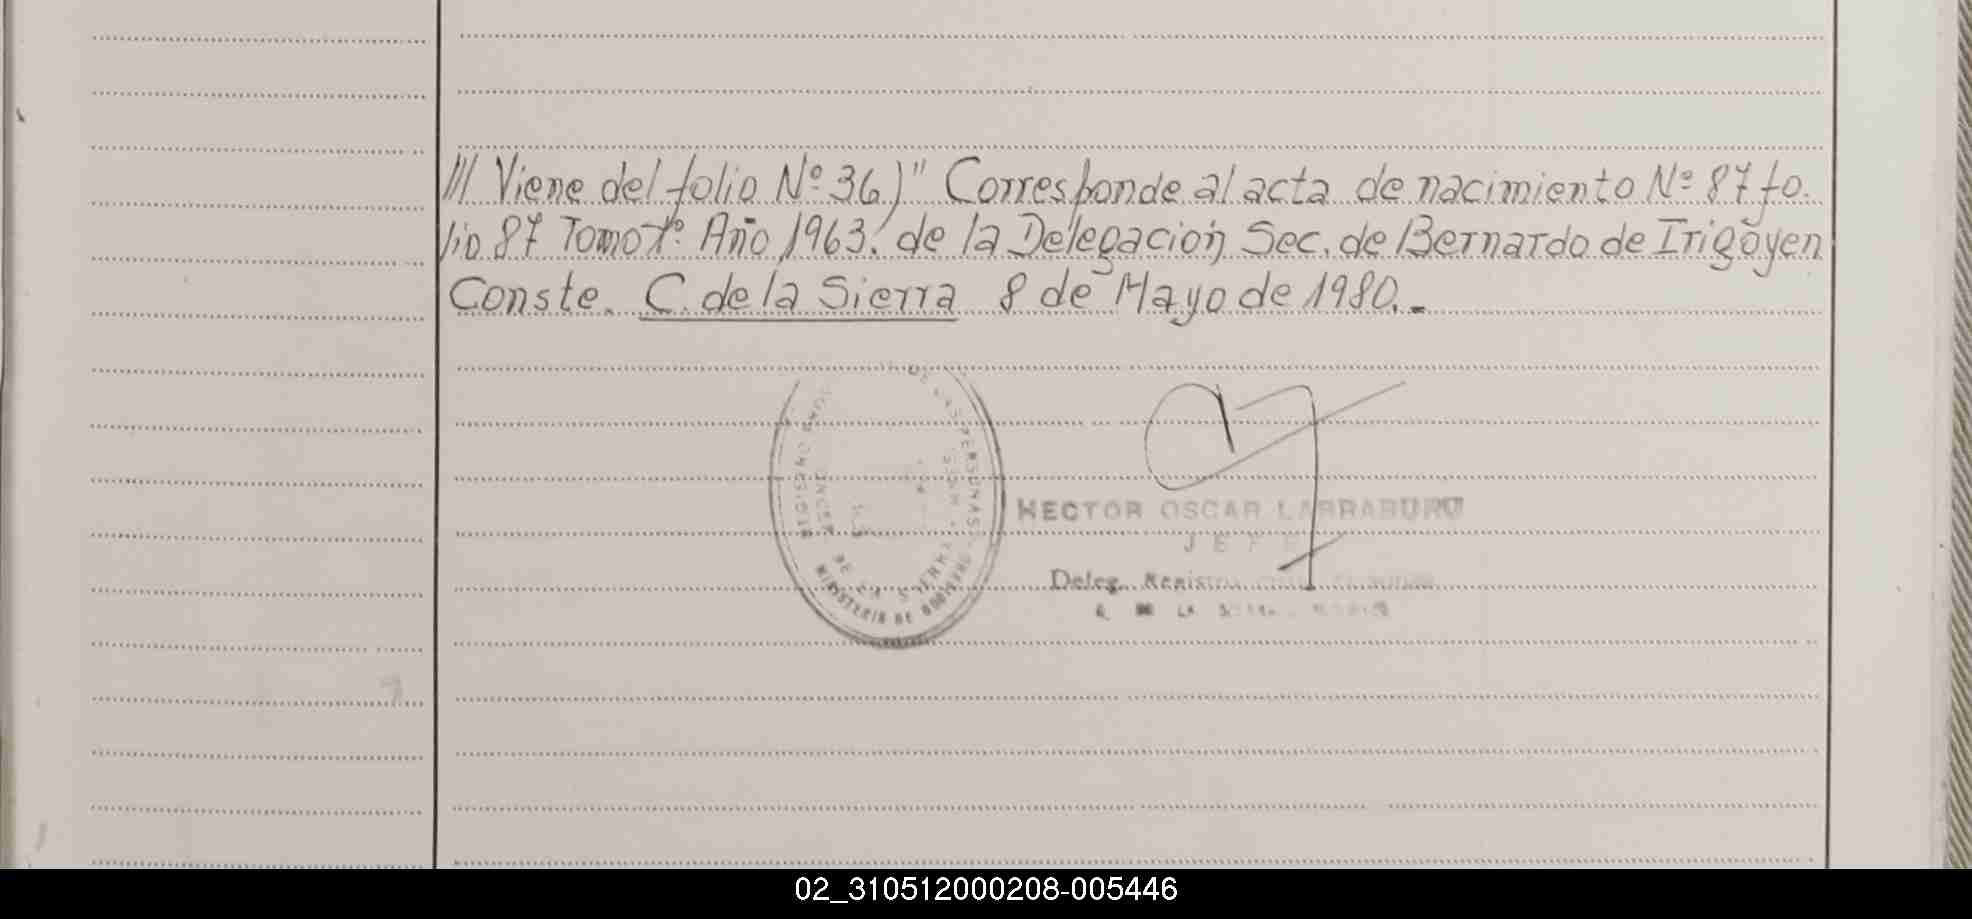 /// Viene del folio Nº 36)" Corresponde al acta de nacimiento Nº 87 fo.
lio 87 Tomo 1º Año 1963. de la Delegación Sec. de Bernardo de Irigoyen
Conste. C. de la Sierra 8 de Mayo de 1980.-
DE LAS PERSONAS
MINISTERIO DE GOBIERNO
DE LA SIERRA
HECTOR OSCAR LARRABURU
JEFE
Deleg. Registro
DE LA
02_310512000208-005446